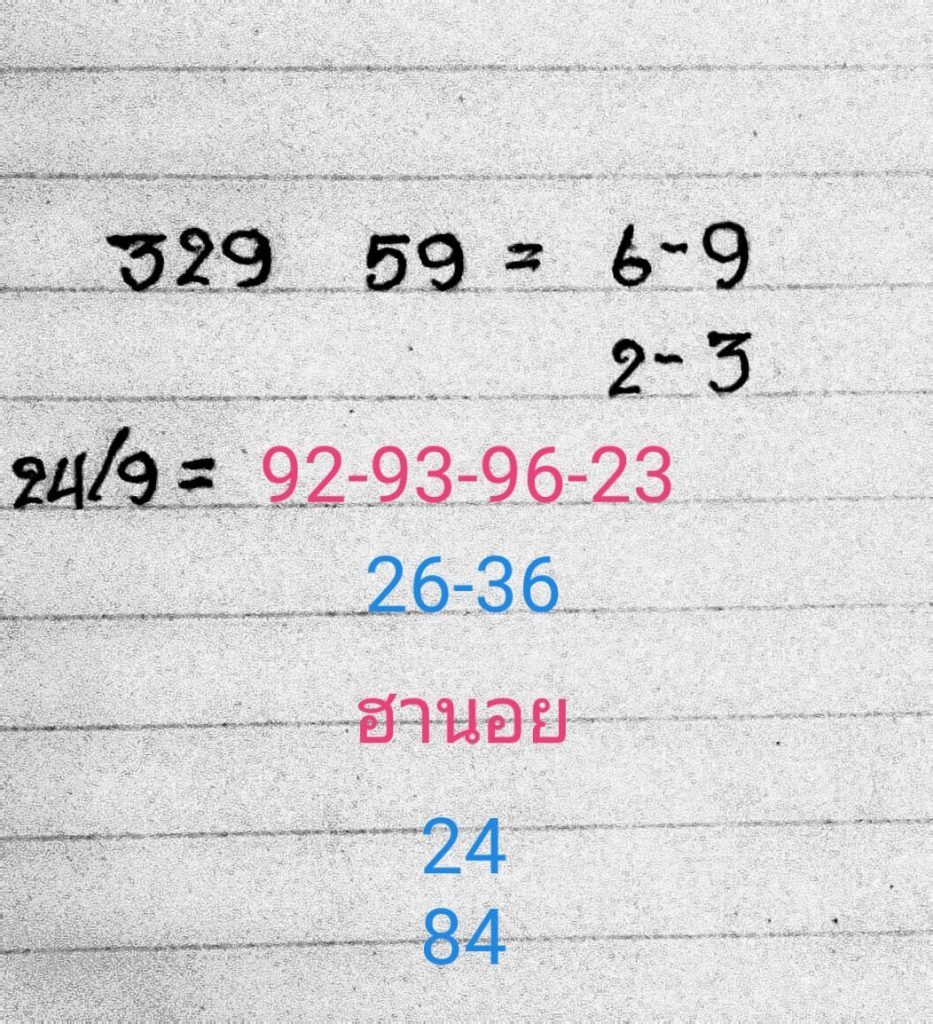 329 59 = 6-9
2-3
24/9 = 92-93-96-23
26-36
ฮานอย
24
84